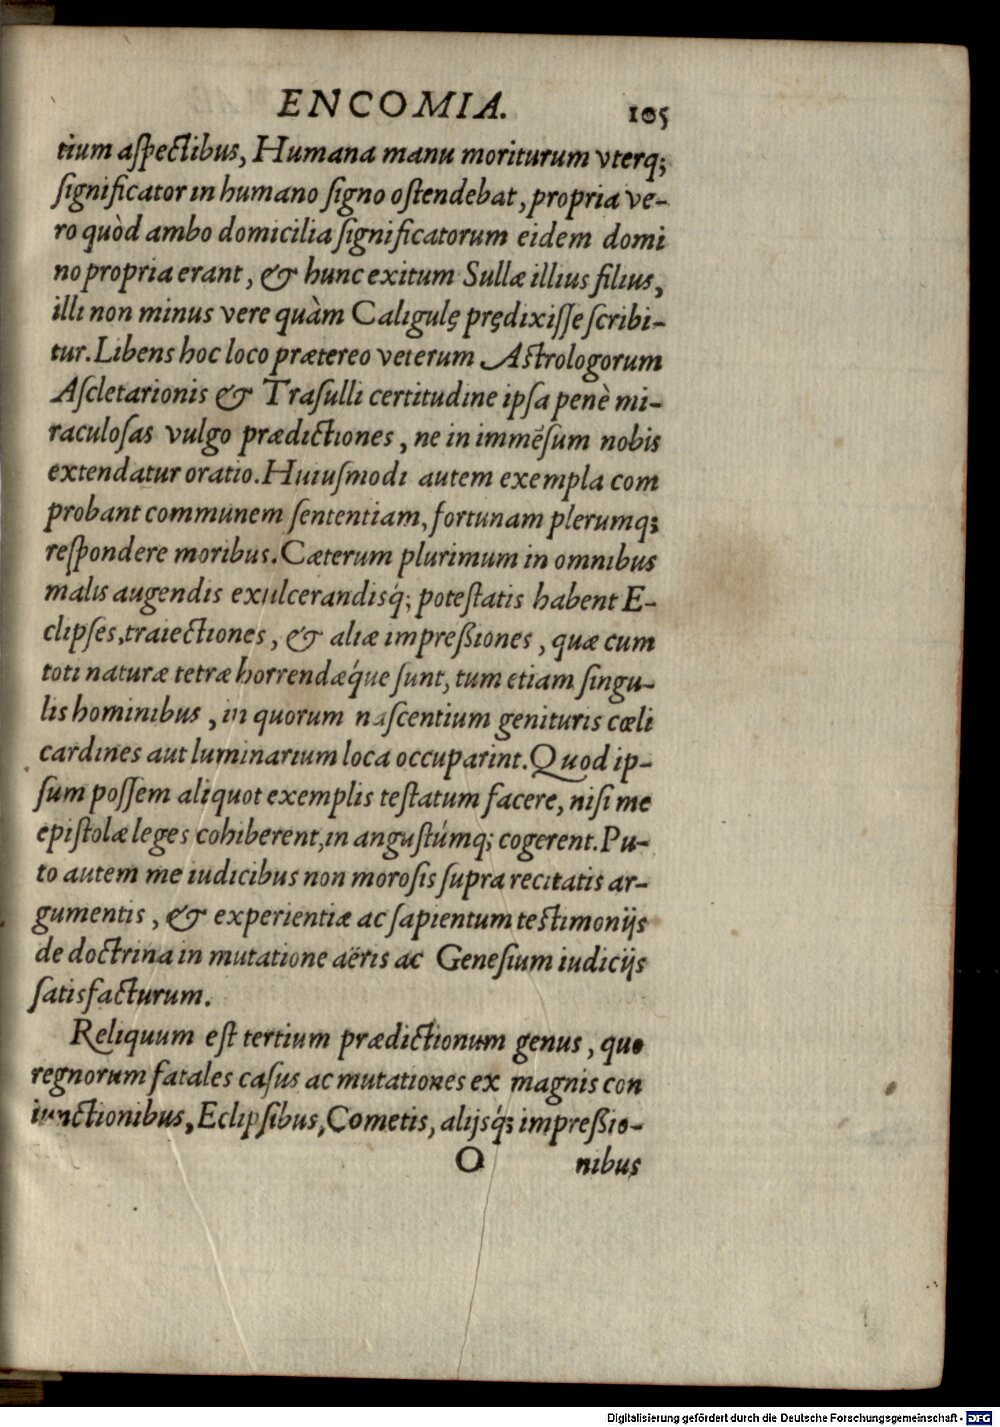 ENCOMIA. 105
tium aſpectibus, Humana manu moriturum vterq;
ſignificator in humano ſigno oſtendebat, propria ve-
ro quòd ambo domicilia ſignificatorum eidem domi
no propria erant, & hunc exitum Sullæ illius filius,
illi non minus vere quàm Caligulę prędixiſſe ſcribi-
tur. Libens hoc loco prætereo veterum Aſtrologorum
Aſcletarionis & Traſulli certitudine ipſa penè mi-
raculoſas vulgo prædictiones, ne in immēſum nobis
extendatur oratio. Huiuſmodi autem exempla com
probant communem ſententiam, fortunam plerumq;
reſpondere moribus. Cæterum plurimum in omnibus
malis augendis exulcerandisq́; poteſtatis habent E-
clipſes, traiectiones, & aliæ impreßiones, quæ cum
toti naturæ tetræ horrendæq́ue ſunt, tum etiam ſingu-
lis hominibus, in quorum naſcentium genituris cœli
cardines aut luminarium loca occuparint. Quod ip-
ſum poſſem aliquot exemplis teſtatum facere, niſi me
epiſtolæ leges cohiberent, in anguſtúmq; cogerent. Pu-
to autem me iudicibus non moroſis ſupra recitatis ar-
gumentis, & experientiæ ac ſapientum teſtimonijs
de doctrina in mutatione aëris ac Geneſium iudicijs
ſatisfacturum.
Reliquum eſt tertium prædictionum genus, quo
regnorum fatales caſus ac mutationes ex magnis con
iunctionibus, Eclipſibus, Cometis, alijsq́; impreßio-
O nibus
Digitalisierung gefördert durch die Deutsche Forschungsgemeinschaft - DFG